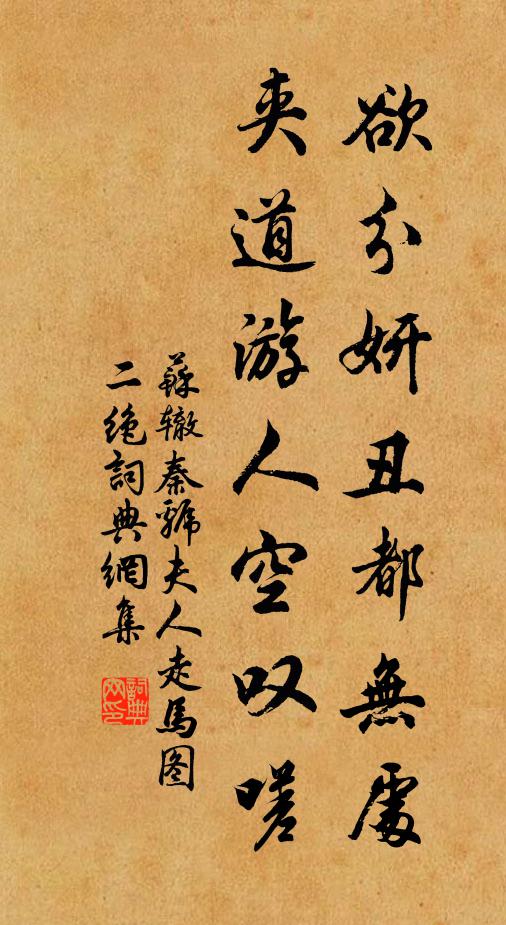 欲分妍丑都無處
夹道游人空叹嗟
蘇辙秦虢夫人走馬图
二绝詞典網集
詞典
网印